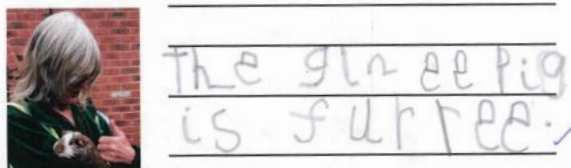 the ginee pig
is furree.